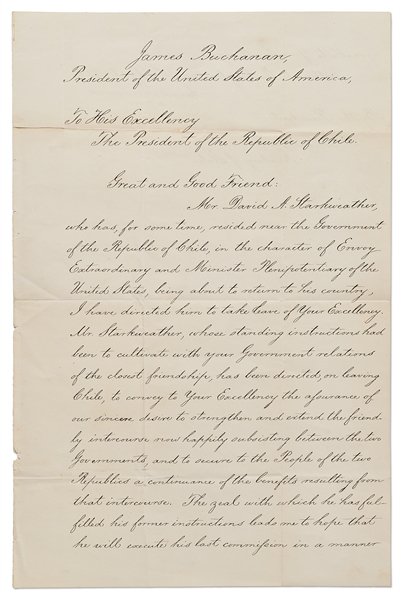 James Buchanan,
President of the United States of America,
To His Excellency
The President of the Republic of Chile.
Great and Good Friend:
Mr. David A. Starkweather,
who has, for some time, resided near the Government
of the Republic of Chile, in the character of Envoy
Extraordinary and Minister Plenipotentiary of the
United States, being about to return to his country,
I have directed him to take leave of Your Excellency.
Mr. Starkweather, whose standing instructions had
been to cultivate with your Government relations
of the closest friendship, has been directed, on leaving
Chile, to convey to Your Excellency the assurance of
our sincere desire to strengthen and extend the friend
ly intercourse now happily subsisting between the two
Governments, and to secure to the People of the two
Republics a continuance of the benefits resulting from
that intercourse. The zeal with which he has ful-
filled his former instructions leads me to hope that
he will execute his last commission in a manner